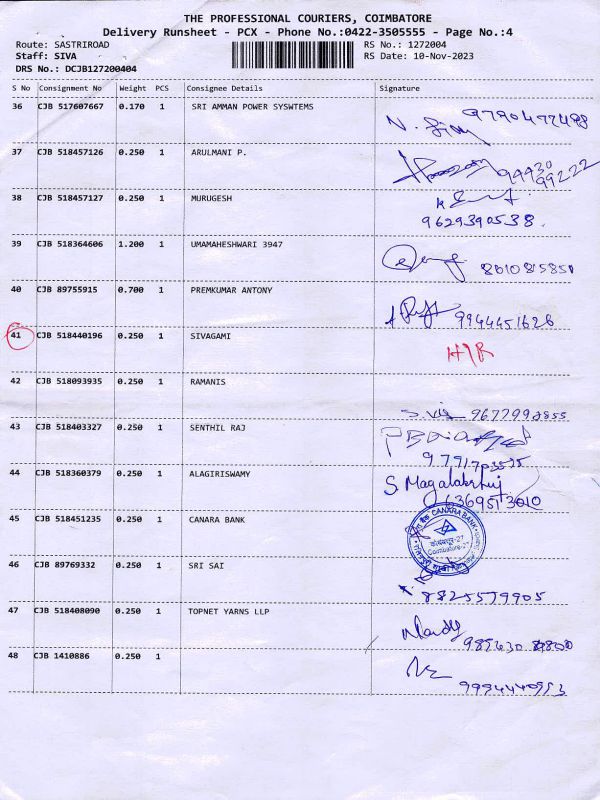 THE PROFESSIONAL COURIERS, COIMBATORE
Delivery Runsheet - PCX - Phone No.:0422-3505555 - Page No.:4
Route: SASTRIROAD RS No.: 1272004
Staff: SIVA RS Date: 10-Nov-2023
DRS No.: DCJB127200404
S No Consignment No Weight PCS Consignee Details Signature
36 CJB 517607667 0.170 1 SRI AMMAN POWER SYSWTEMS
37 CJB 518457126 0.250 1 ARULMANI P. 99430 99222
38 CJB 518457127 0.250 1 MURUGESH
9629390538.
39 CJB 518364606 1.200 1 UMAMAHESHWARI 3947
40 CJB 89755915 0.700 1 PREMKUMAR ANTONY 9944451626
41 CJB 518440196 0.250 1 SIVAGAMI
42 CJB 518093935 0.250 1 RAMANIS
43 CJB 518403327 0.250 1 SENTHIL RAJ
44 CJB 518360379 0.250 1 ALAGIRISWAMY S.
6369513010
45 CJB 518451235 0.250 1 CANARA BANK CANARA BANK
कोयंबतूर-27
Coimbatore-27
46 CJB 89769332 0.250 1 SRI SAI
8825579905
47 CJB 518408090 0.250 1 TOPNET YARNS LLP
48 CJB 1410886 0.250 1
9994440953